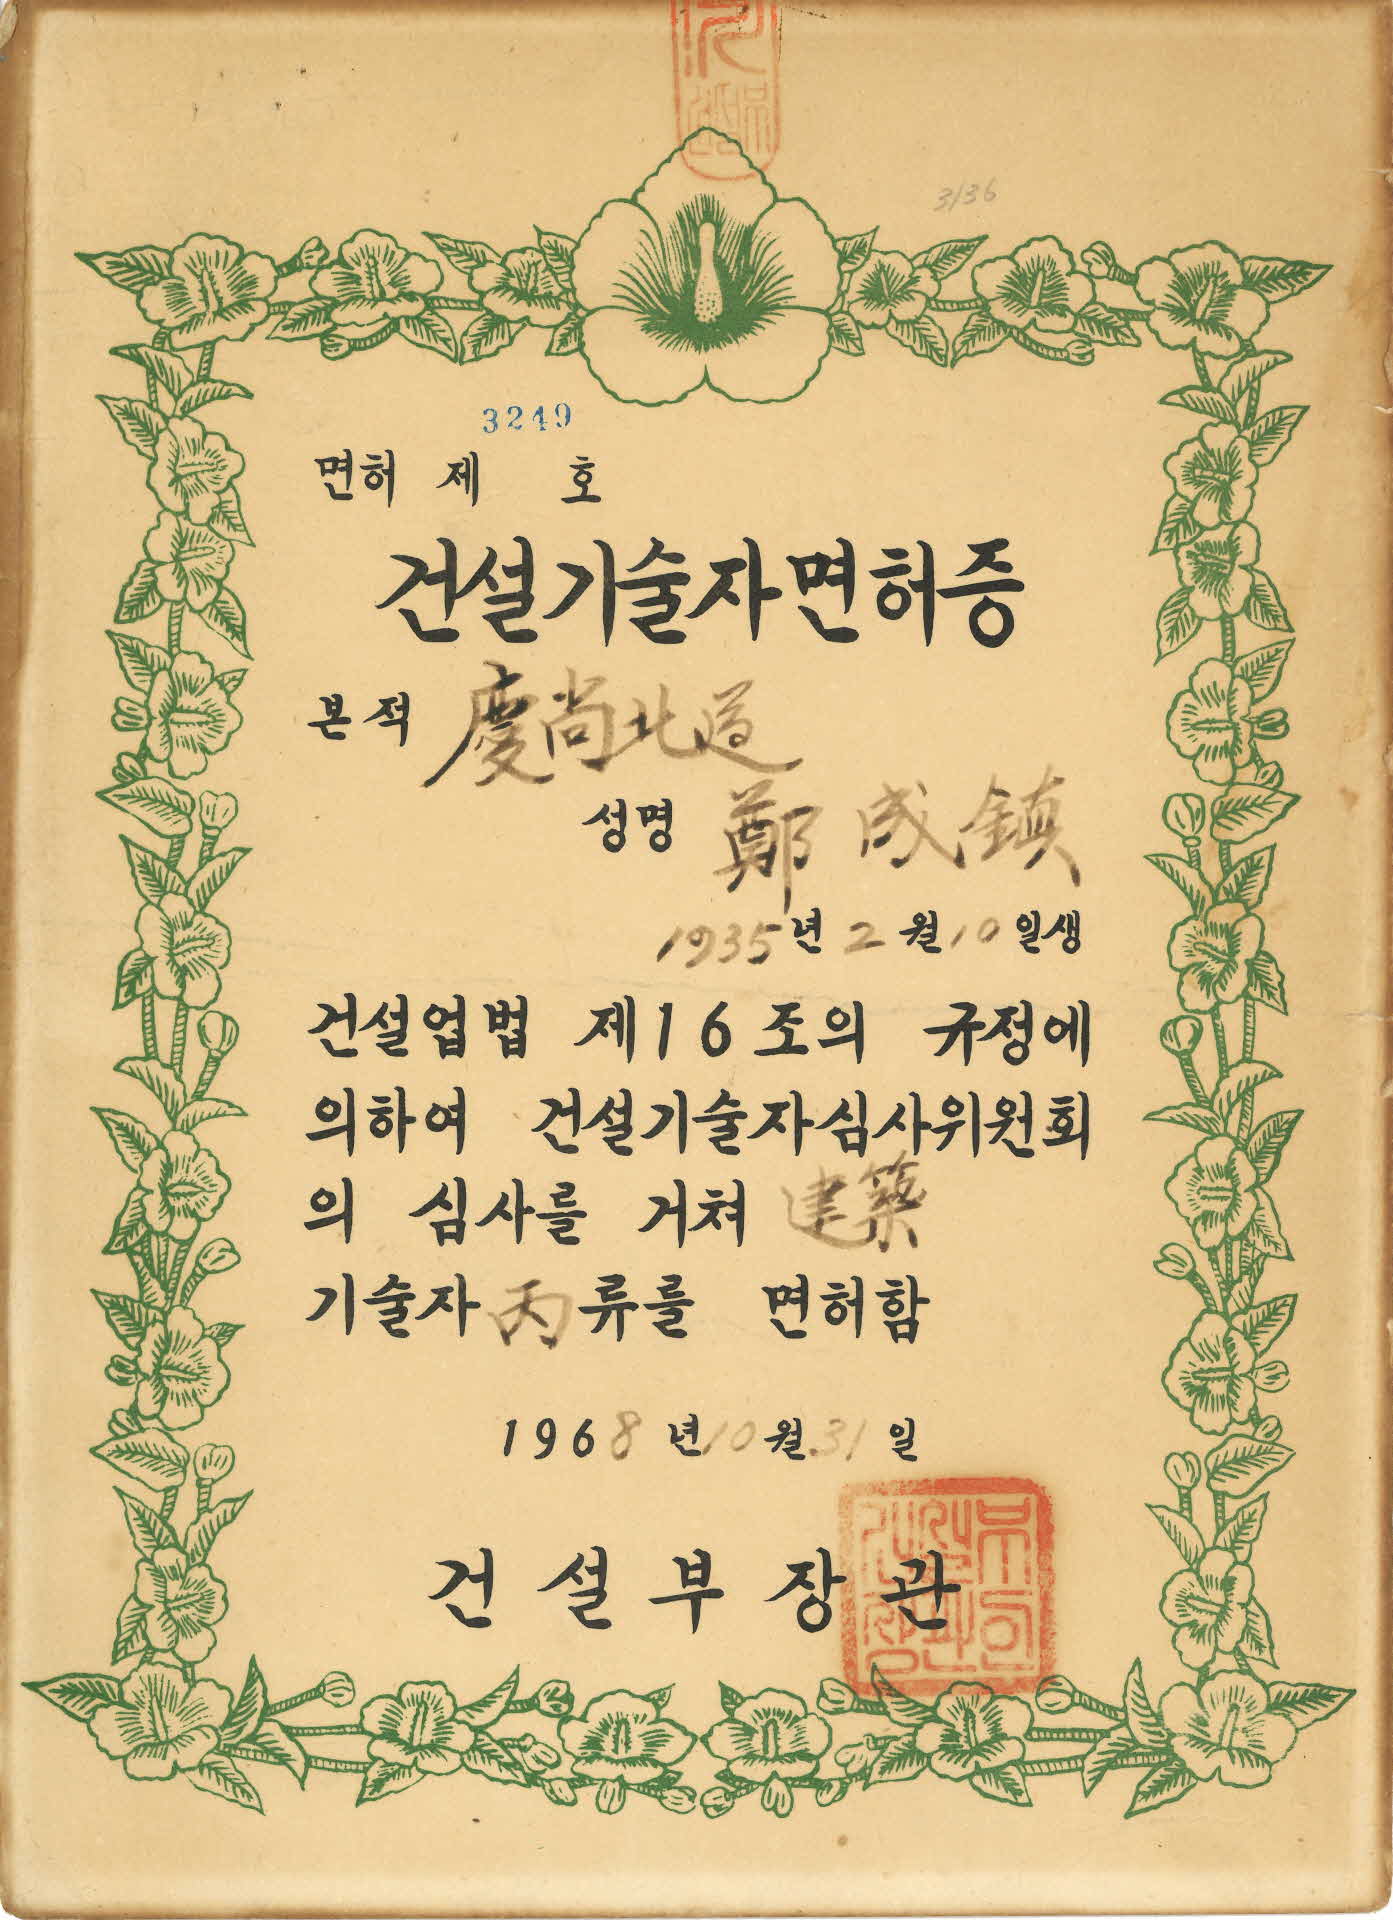 3136
3249
면허 제 호
건설기술자면허증
본적 慶尚北道
성명 鄭成鎮
1935년 2월 10일생
건설업법 제16조의 규정에
의하여 건설기술자심사위원회
의 심사를 거쳐 建築
기술자 丙류를 면허함
1968년 10월 31일
건설부장관